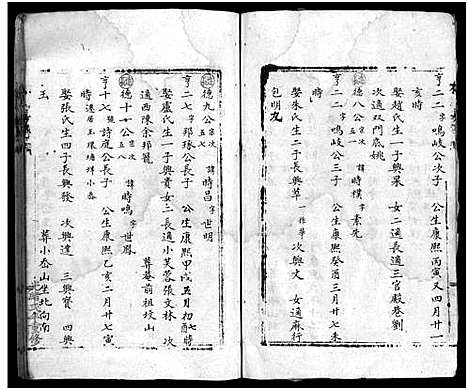 亨二二 鳴岐公次子 公生康熙丙寅又四月廿一
亥時
娶趙氏生一子興杲 女二長適三官殿巷劉
次適双門底姚
德八公 行次 諱時樸 字素先
亨二二 鳴岐公三子 公生康熙癸酉三月廿七未
時
娶朱氏生二子長興萃 次興文 女適麻行
包明九
德九公 行次五七 諱時昌 字世明
亨二七 邦瑑公長子 公生康熙甲戌五月初七時
娶盧氏生一子興貴 女二長適小芙蓉張文林 次
適西陳余邦龍 葬庵前祖坟山
德十公 行次五八 諱時鳴 字世鳳
亨十七 詩庭公長子 公生康熙乙亥二月廿七寅
時 遷居玉環塘垟小岙
娶張氏生四子長興發 次興達 三興寶 四興
玉 葬小岙山坐北向南